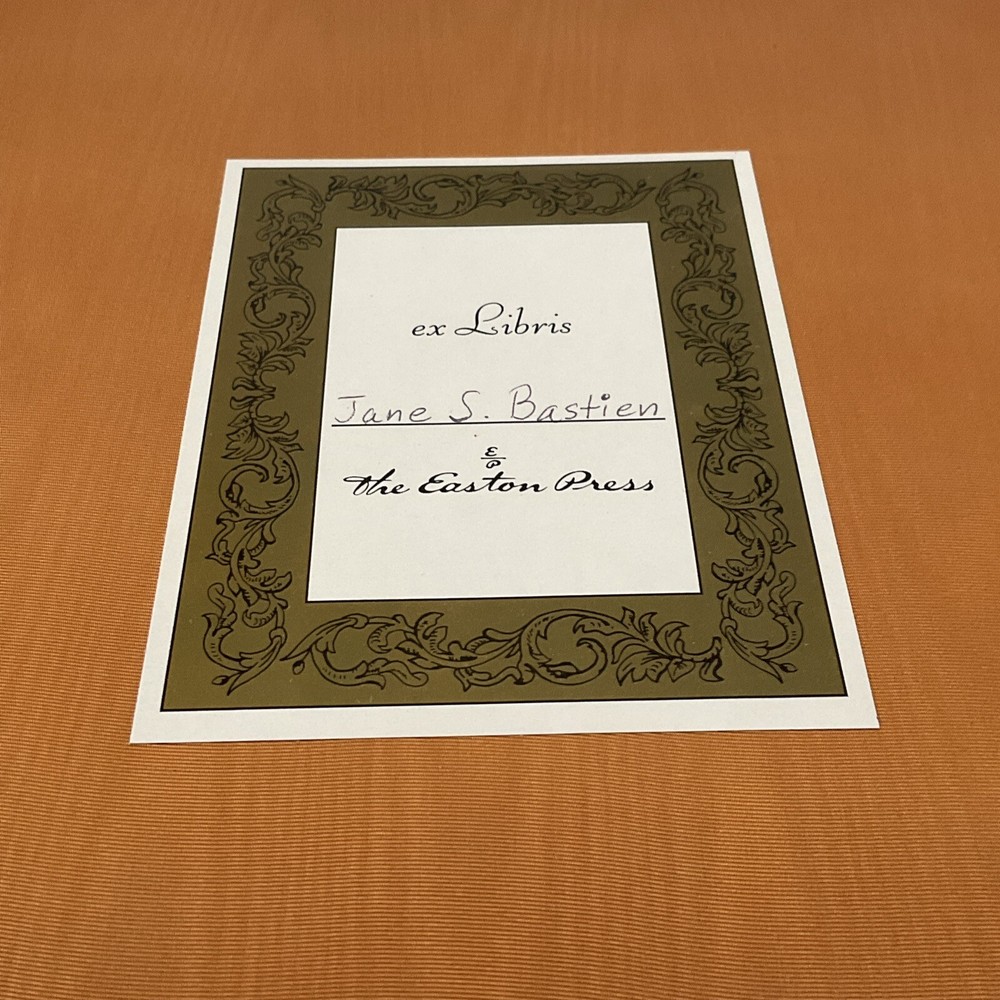 ex Libris
Jane S. Bastien
E
P
the Easton Press